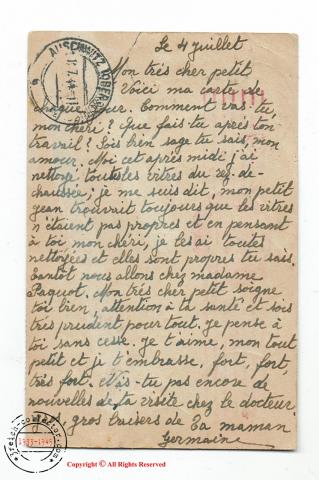 Le 4 juillet
AUSCHWITZ (OBERSCHL
7.44-11
Mon très cher petit
Voici ma carte de
chaque jour. Comment vas-tu,
mon chéri? Que fais-tu après ton
travail? Sois bien sage tu sais, mon
amour. Moi cet après midi j'ai
nettoyé toutes les vitres du rez-de-
chaussée; je me suis dit, mon petit
Jean trouvrait toujours que les vitres
n'étaient pas propres et en pensant
à toi mon chéri, je les ai toutes
nettoyées et elles sont propres tu sais.
Tantôt nous allons chez madame
Paquot. Mon très cher petit soigne
toi bien, attention à ta santé et sois
très prudent pour tout. Je pense à
toi sans cesse. Je t'aime, mon tout
petit et je t'embrasse, fort, fort,
très fort. N'as-tu pas encore de
nouvelles de ta visite chez le docteur.
gros baisers de ta maman
Germaine
1933-1945
Copyright © All Rights Reserved